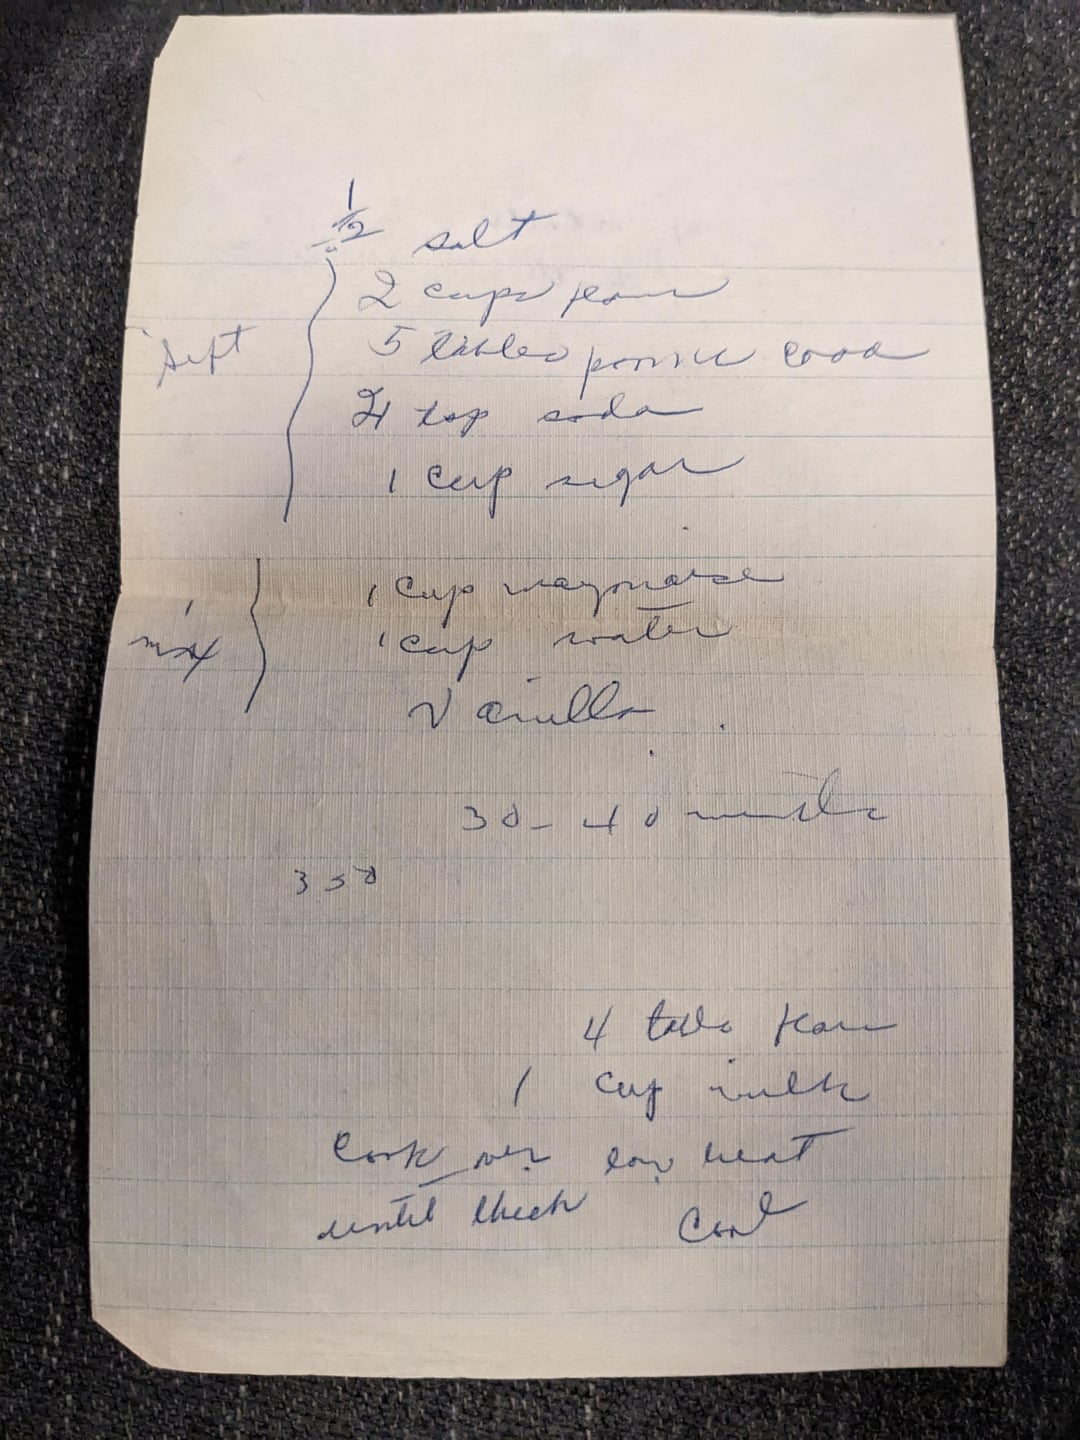 1/2 salt
2 cups flour
Sift 5 tables
2 tsp soda
1 cup sugar
1 cup mayonaise
mix 1 cup water
Vanilla
30-40 minutes
350
4 table flour
1 cup milk
Cook over low heat
until thick Cool